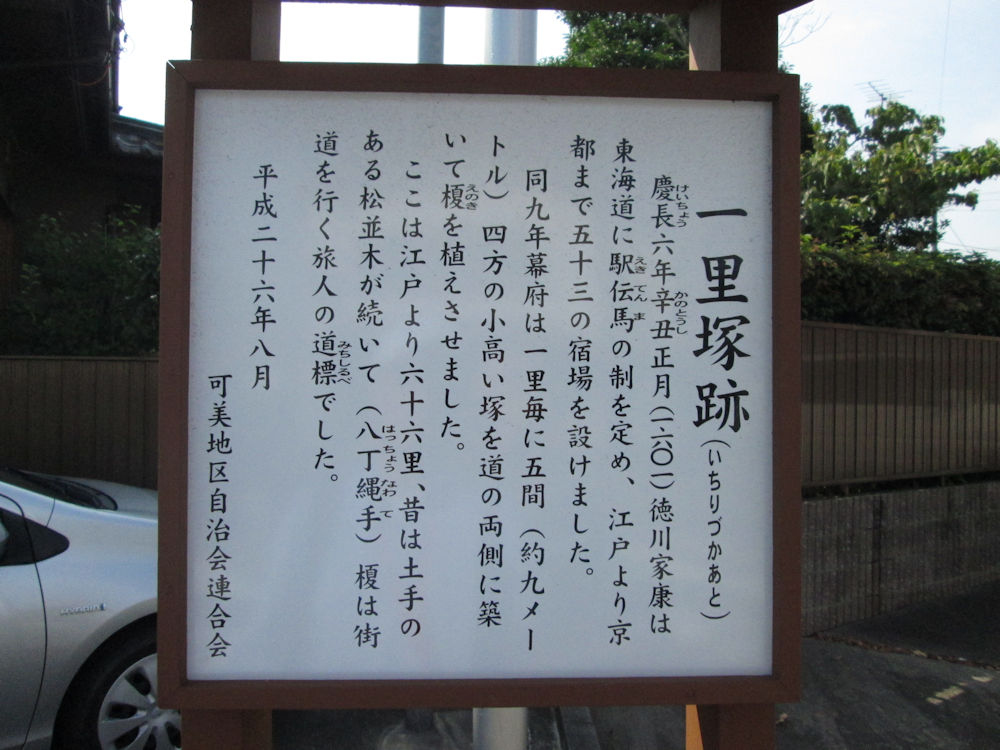 一里塚跡（いちりづかあと）
慶長六年辛丑正月（一六〇一）徳川家康は
東海道に駅伝馬の制を定め、江戸より京
都まで五十三の宿場を設けました。
同九年幕府は一里毎に五間（約九メー
トル）四方の小高い塚を道の両側に築
いて榎を植えさせました。
ここは江戸より六十六里、昔は土手の
ある松並木が続いて（八丁縄手）榎は街
道を行く旅人の道標でした。
平成二十六年八月
可美地区自治会連合会